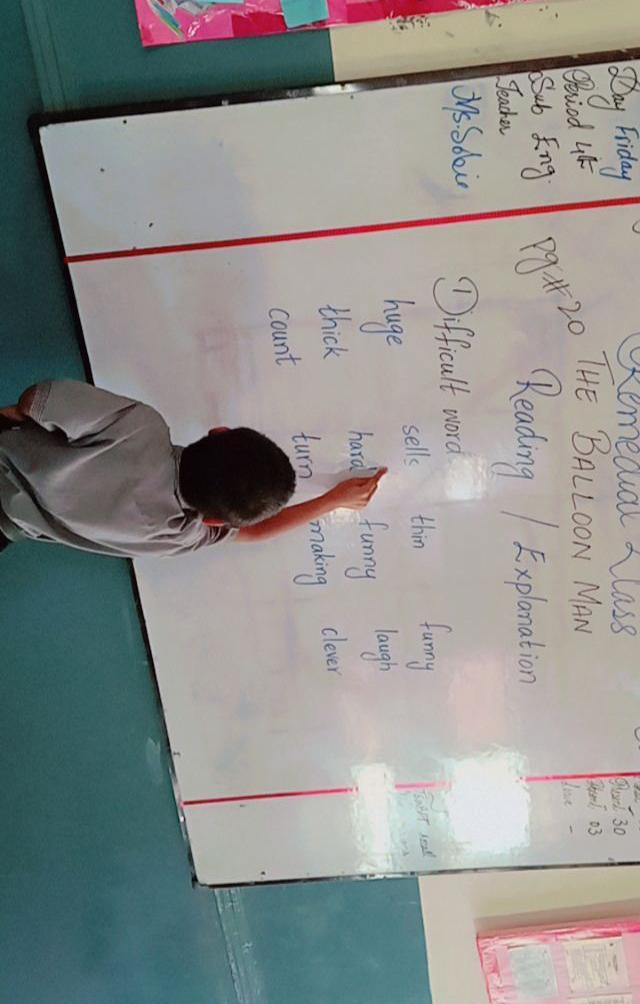 Remedial Class
Day Friday
Period 4th
Sub Eng.
Teacher
Ms. Sobie
Pg # 20 THE BALLOON MAN
Reading / Explanation
Difficult word
huge sells thin funny
thick hard funny laugh
count turn making clever
30
03
-